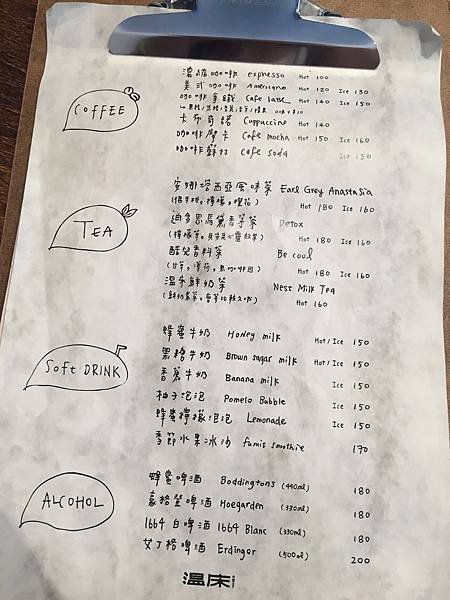 COFFEE
濃縮咖啡 expresso Hot 100
美式咖啡 Americano Hot 120 Ice 130
咖啡拿鐵 Cafe latte Hot 140 Ice 150
卡布奇諾 Cuppuccino Hot 140
咖啡摩卡 Cafe mocha Hot 150 Ice 160
咖啡蘇打 Cafe soda Ice 150
TEA
安娜塔西亞風味茶 Earl Grey Anastasia
Hot 180 Ice 160
迪多思瑪黛香草茶 Detox
Hot 180 Ice 160
酷兒香料茶 Be cool
Hot 180 Ice 160
溫床鮮奶茶 Nest Milk Tea
Hot 160
Soft DRINK
蜂蜜牛奶 Honey milk Hot/Ice 150
黑糖牛奶 Brown sugar milk Hot/Ice 150
香蕉牛奶 Banana milk Ice 150
柚子泡泡 Pomelo Bubble Ice 150
蜂蜜檸檬泡泡 Lemonade Ice 150
季節水果冰沙 fumis smoothie 170
ALCOHOL
啤酒 Boddingtons (440ml) 180
豪格登啤酒 Hoegarden (330ml) 180
1664 白啤酒 1664 Blanc (330ml) 180
艾丁格啤酒 Erdinger (500ml) 200
溫床